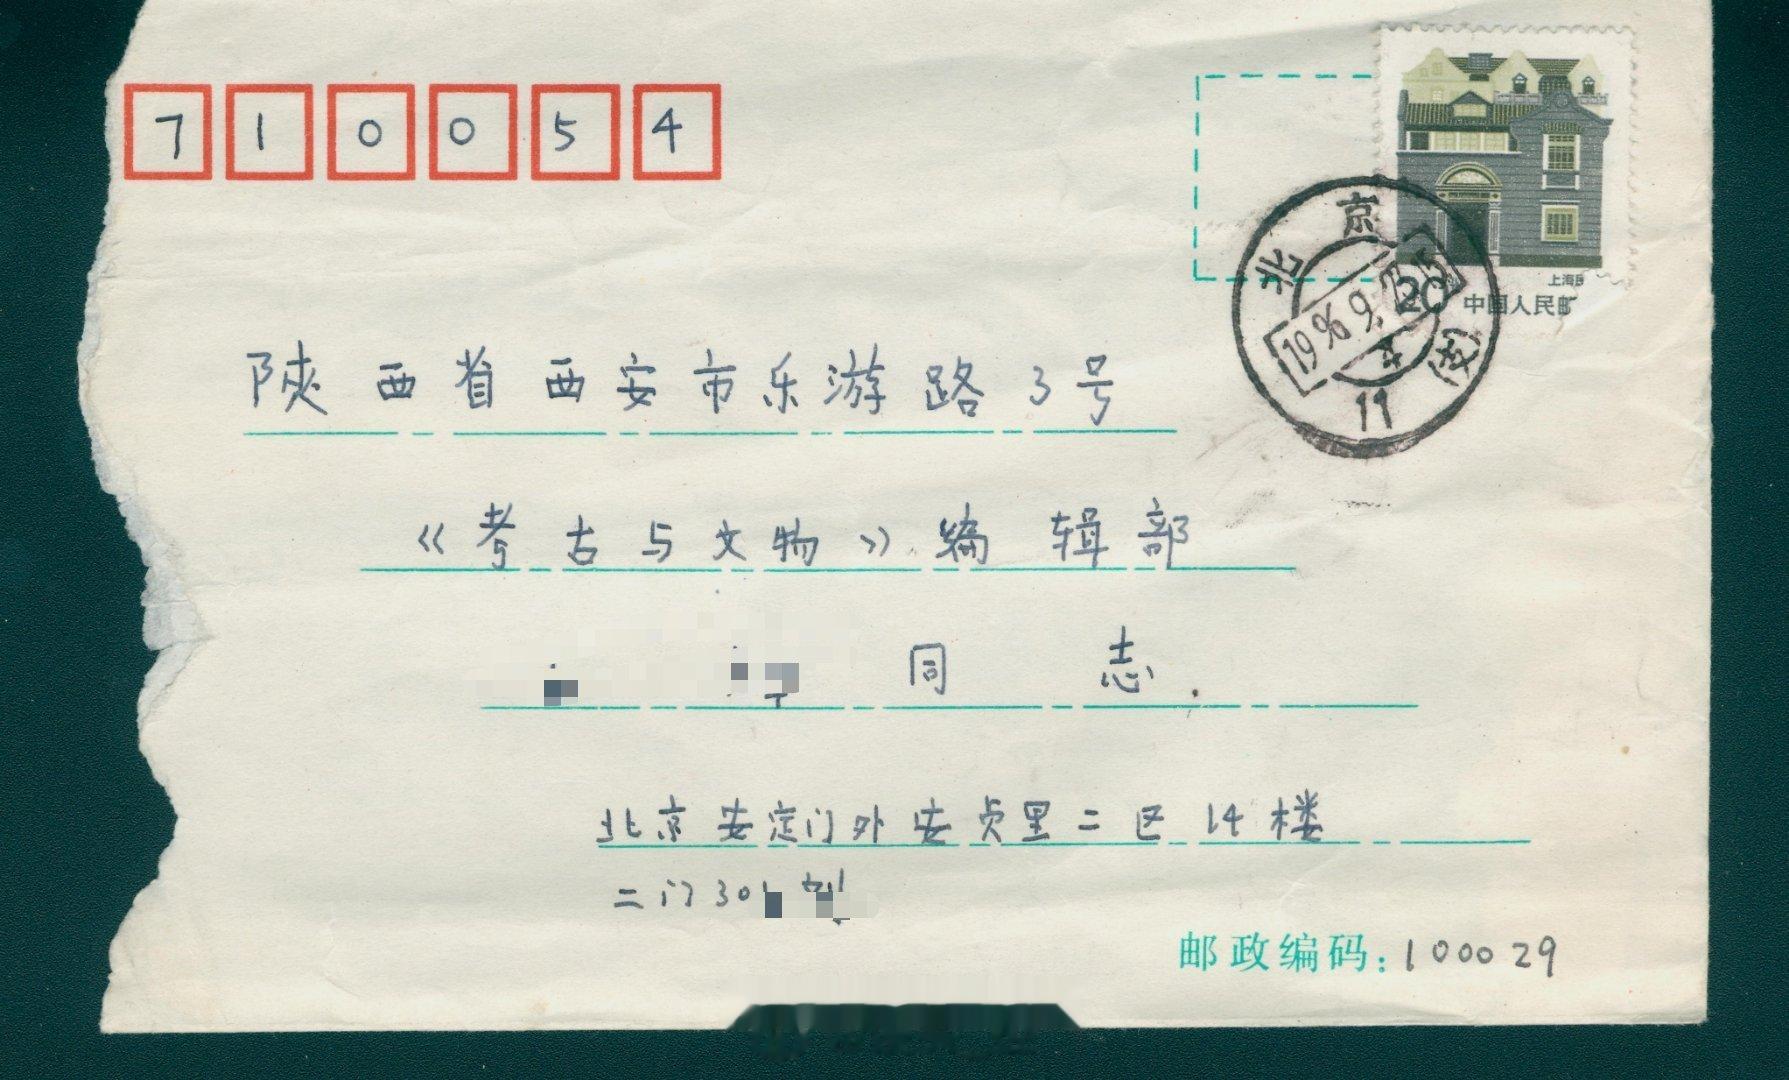 710054
上海民
中国人民邮
北京
1996.9.
11
陕西省西安市乐游路3号
《考古与文物》编辑部
同志
北京安定门外安贞里二区14楼
二门30
邮政编码:100029